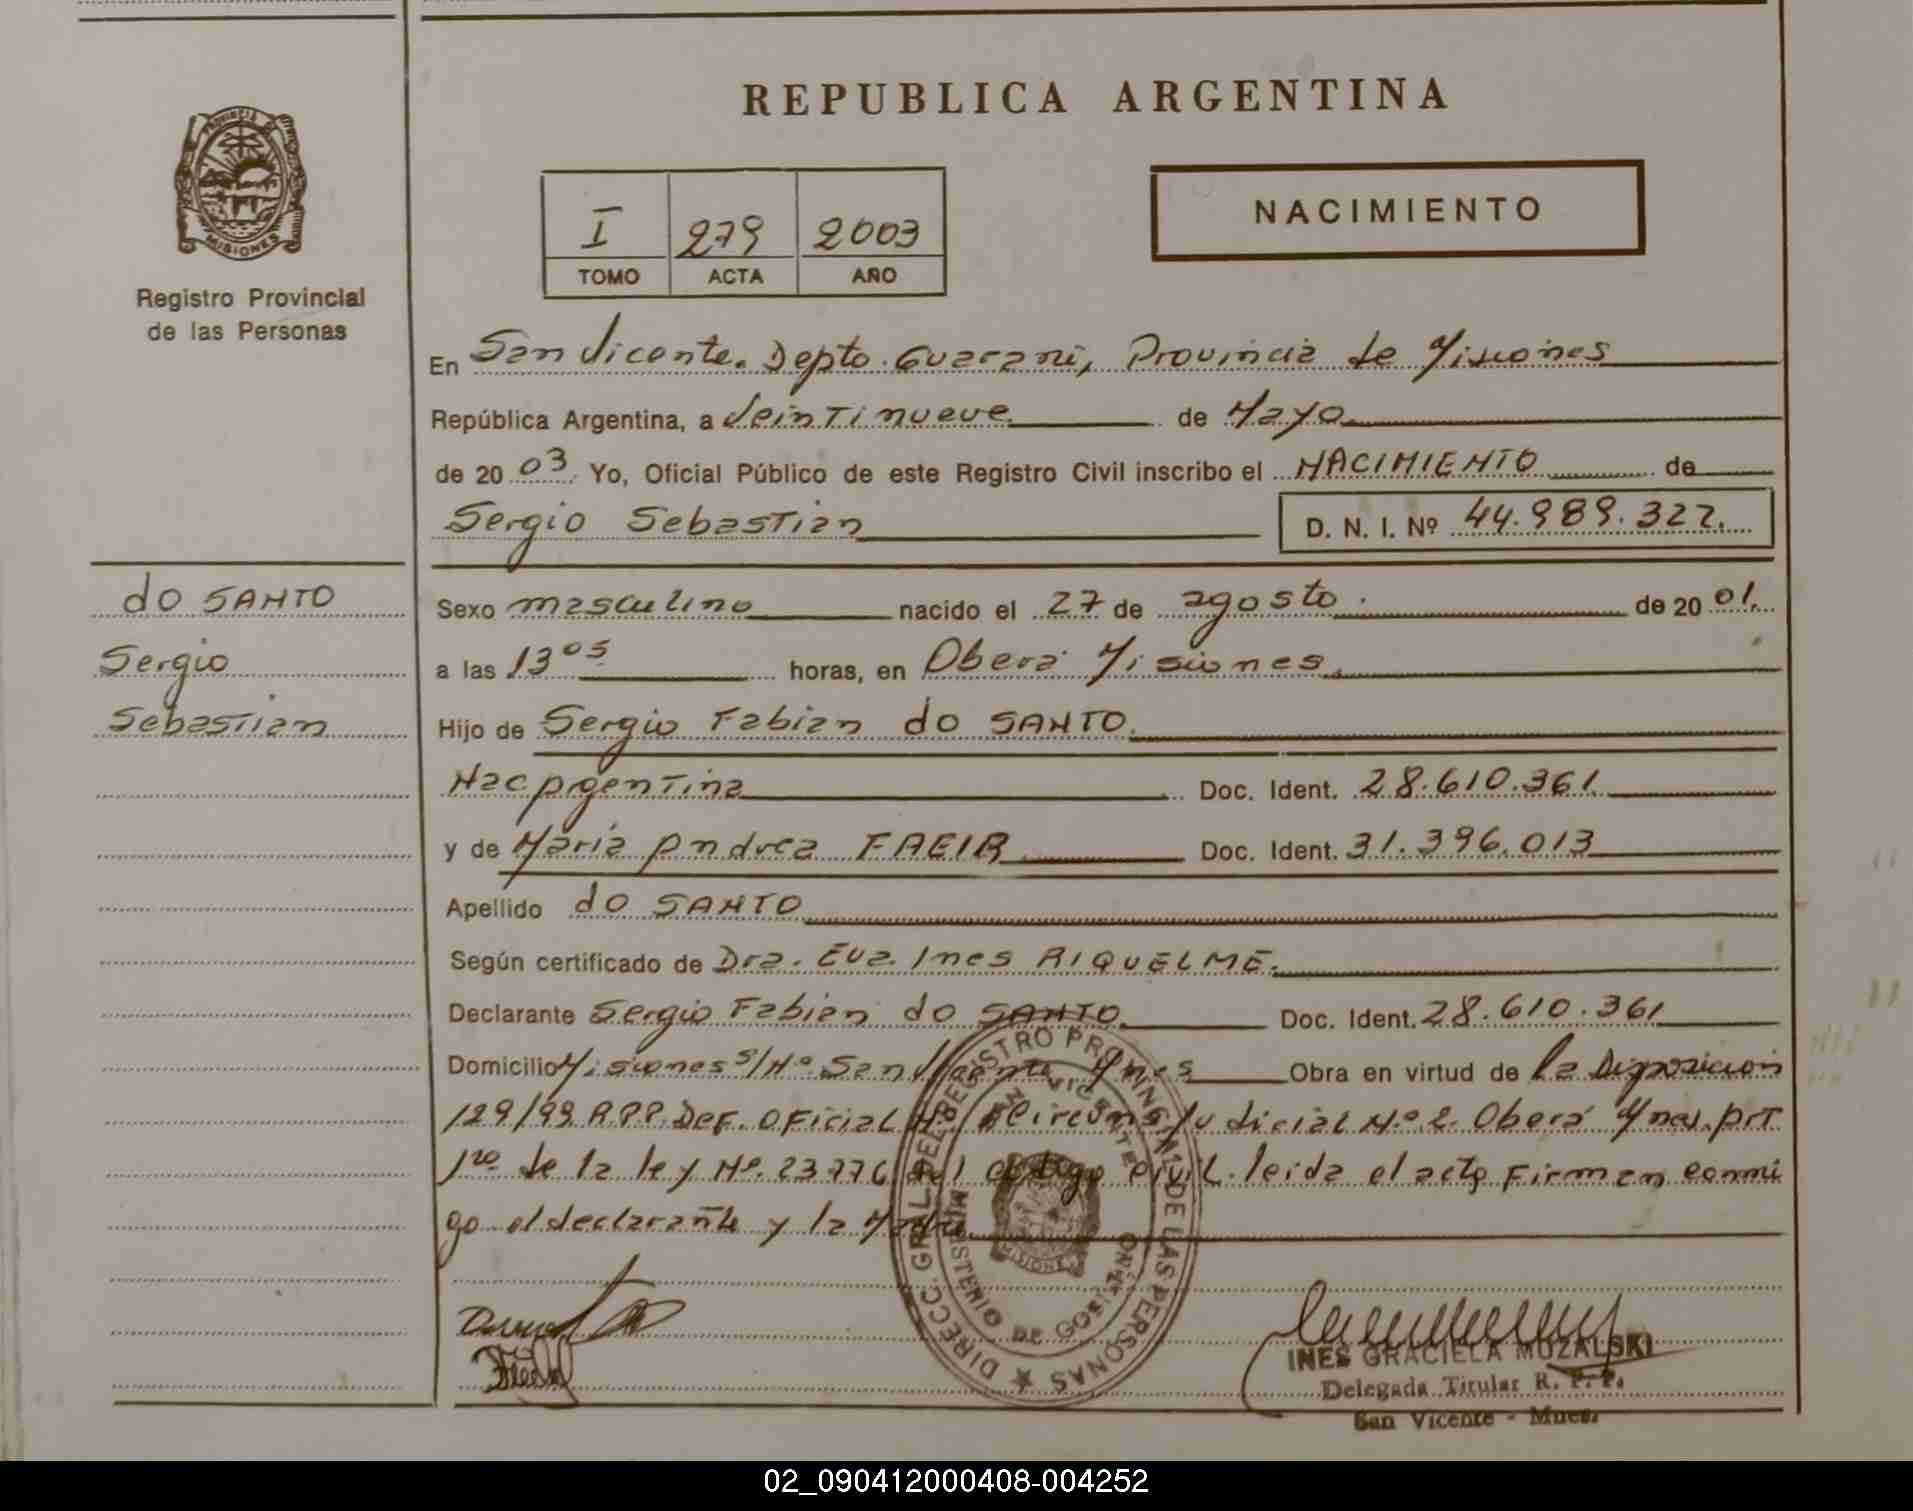 REPUBLICA ARGENTINA
PROVINCIA DE
MISIONES
Registro Provincial
de las Personas
I 279 2003
TOMO ACTA AÑO
NACIMIENTO
En San Vicente. Depto. Guarani, Provincia de Misiones
República Argentina, a Veintinueve de Mayo
de 2003 Yo, Oficial Público de este Registro Civil inscribo el NACIMIENTO de
Sergio Sebastian D. N. I. Nº 44.989.327.
do SANTO
Sergio
Sebastian
Sexo masculino nacido el 27 de agosto. de 2001.
a las 13 05 horas, en Oberá Misiones
Hijo de Sergio Fabian do SANTO.
Nac Argentina Doc. Ident. 28.610.361
y de María Andrea FAEIR Doc. Ident. 31.396.013
Apellido do SANTO
Según certificado de Dra. Eva Ines RIQUELME.
Declarante Sergio Fabian do SANTO Doc. Ident. 28.610.361
Domicilio Misiones s/Nº San Vicente Mnes Obra en virtud de la Disposicion
129/99 R.P.P. Def. Oficial Nº Circuns Judicial Nº 2 Oberá Mnes. Art
1ro de la ley Nº 23776 del Codigo Civil. leida el acta Firman conmi
go el declarante y la Madre
DIRECC. GRAL. DEL REGISTRO PROVINCIAL DE LAS PERSONAS
MINISTERIO DE GOBIERNO
SAN VICENTE
MISIONES
INES GRACIELA MUZALSKI
Delegada Titular R. P. P.
San Vicente - Mnes.
02_090412000408-004252